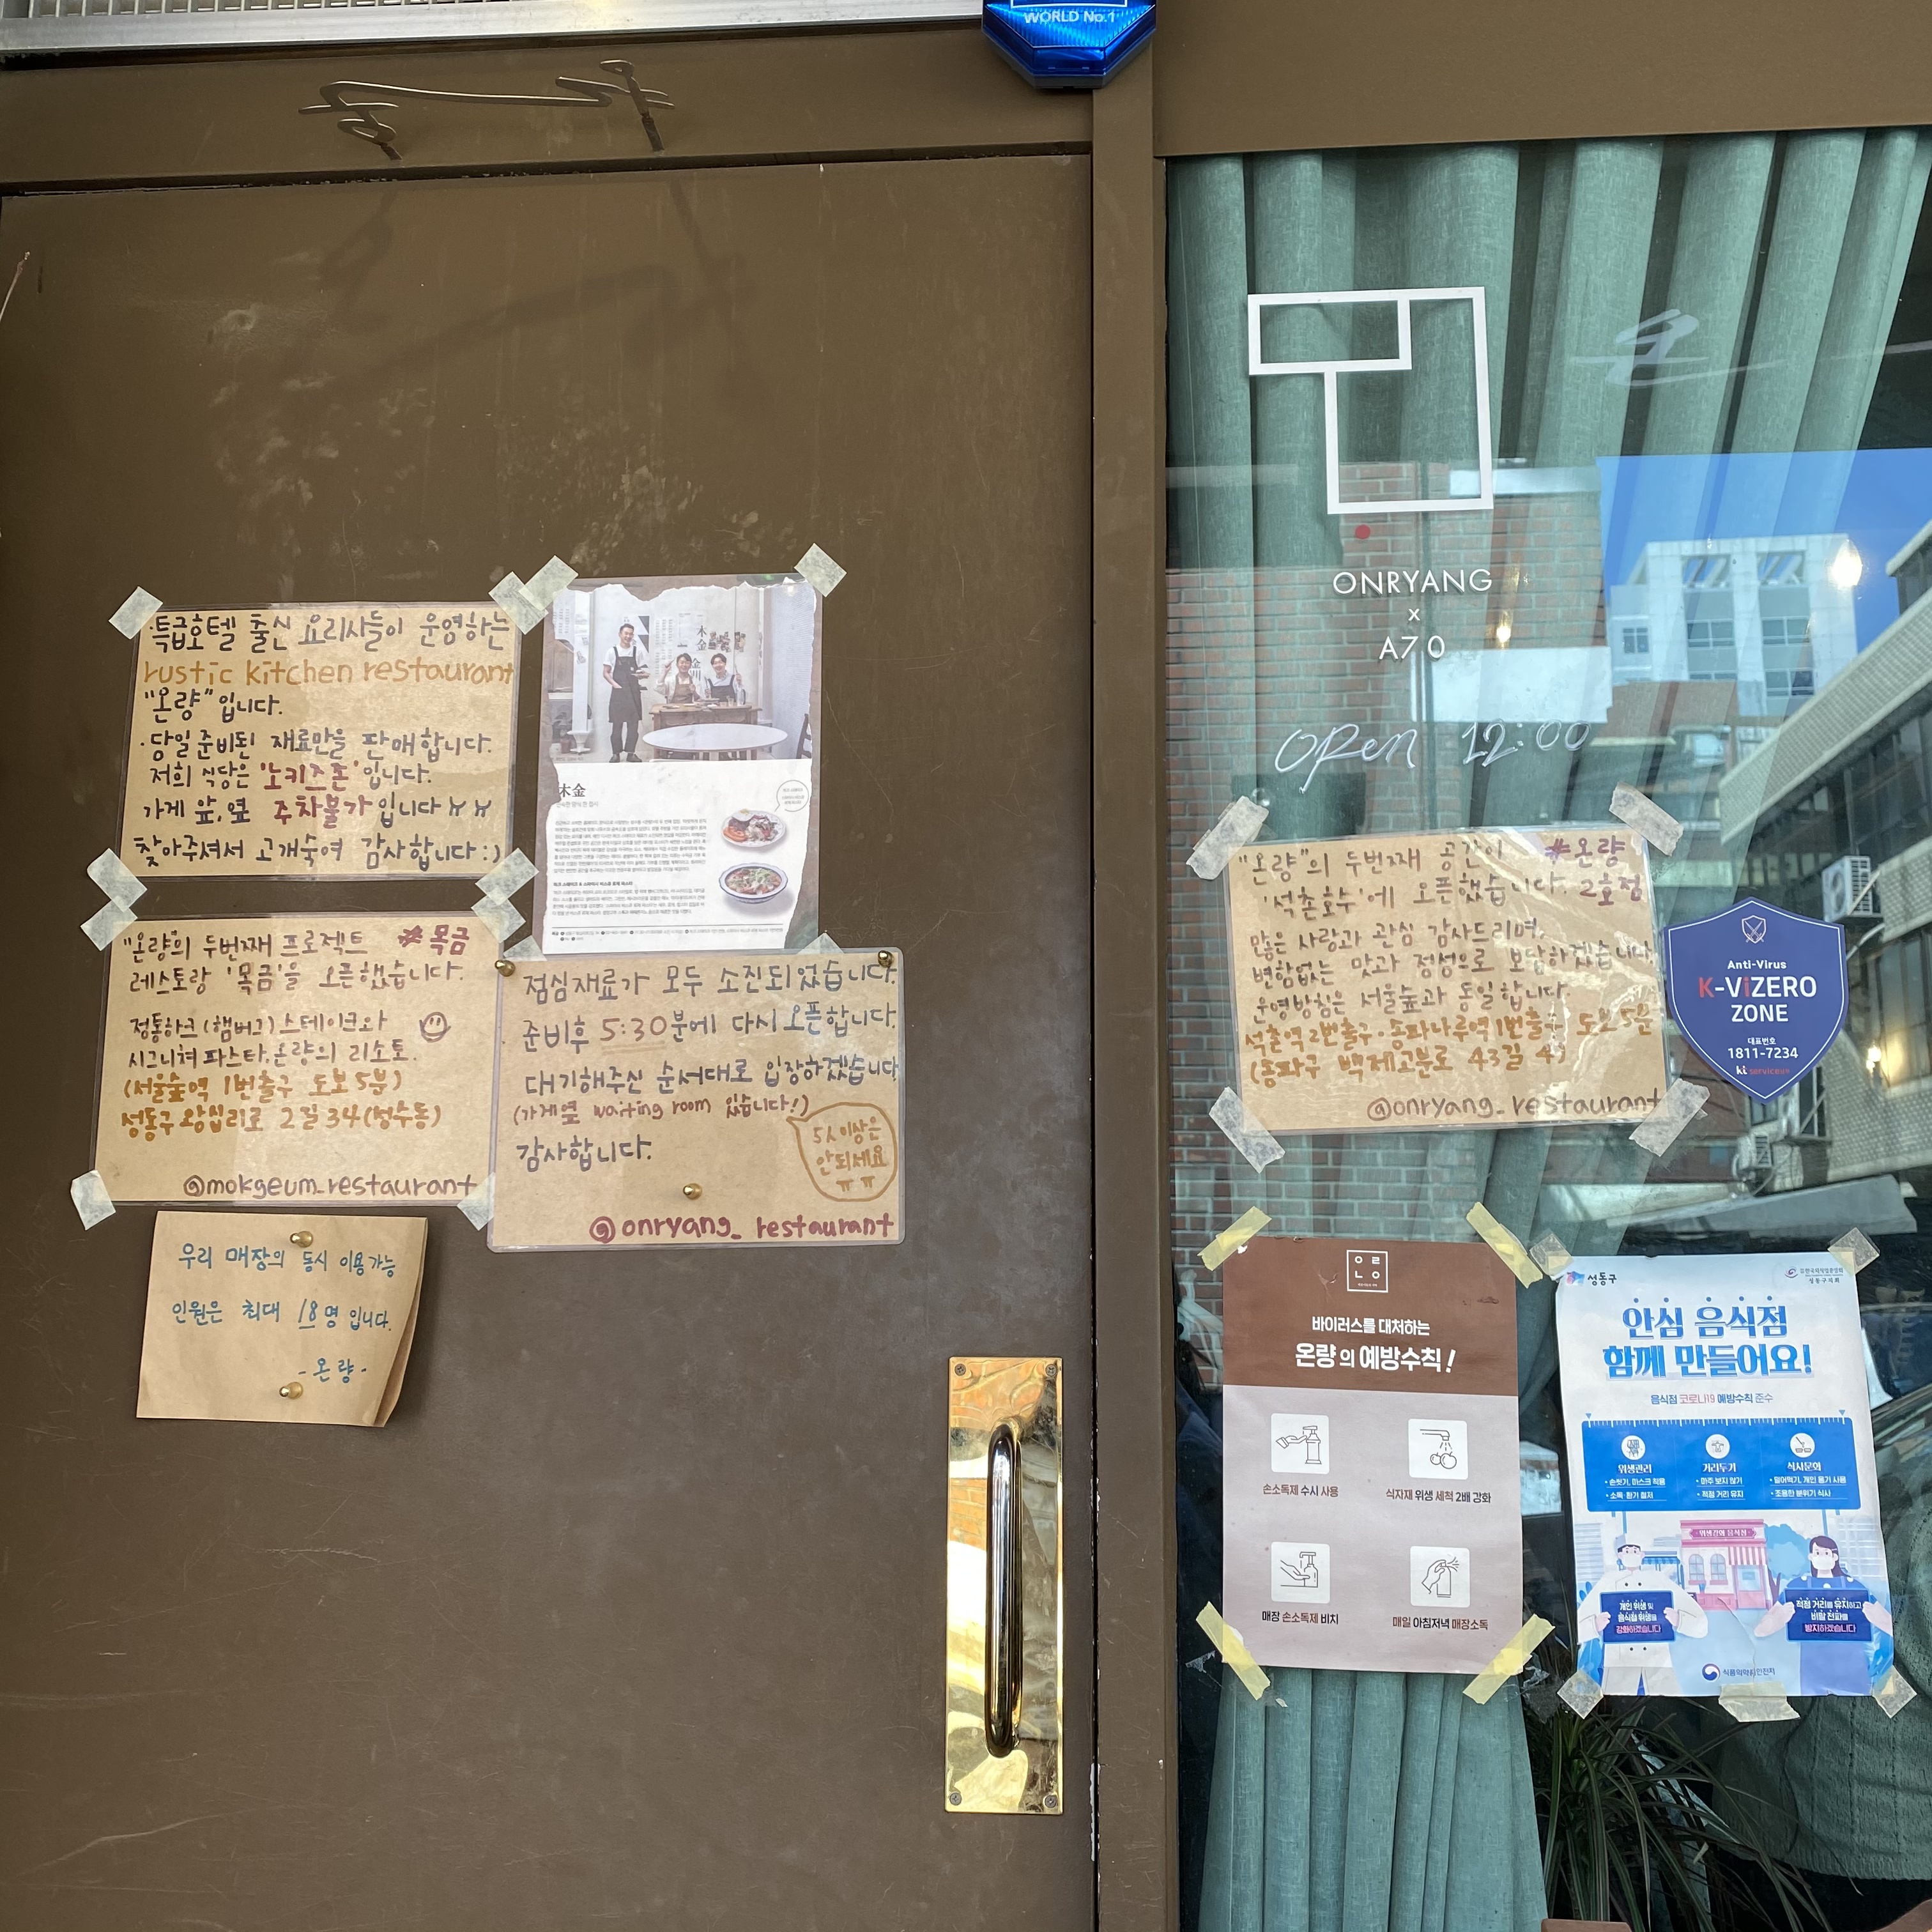 WORLD No.1
·특급호텔 출신 요리사들이 운영하는
rustic kitchen restaurant
"온량"입니다.
·당일준비된 재료만을 판매합니다.
저희 식당은 '노키즈존'입니다.
가게 앞,옆 주차불가입니다ㅠㅠ
찾아주셔서 고개숙여 감사합니다:)
木金
"온량"의 두번째 프로젝트 #목금
레스토랑 '목금'을 오픈했습니다.
정통하크(햄버그)스테이크와
시그니쳐 파스타,온량의 리소토.
(서울숲역 1번출구 도보 5분)
성동구 왕십리로 2길 34(성수동)
@mokgeum_restaurant
점심재료가 모두 소진되었습니다.
준비후 5:30분에 다시 오픈합니다.
대기해주신 순서대로 입장하겠습니다
(가게옆 waiting room 있습니다!)
감사합니다.
5人이상은
안되세요
ㅠㅠ
@onryang_restaurant
우리 매장의 동시 이용가능
인원은 최대 18명 입니다.
-온량-
ONRYANG
x
A70
open 12:00
"온량"의 두번째 공간이 #온량
'석촌호수'에 오픈했습니다. 2호점
많은 사랑과 관심 감사드리며,
변함없는 맛과 정성으로 보답하겠습니다
운영방침은 서울숲과 동일합니다.
석촌역 2번출구·송파나루역 1번출구 도보 5분
(송파구 백제고분로 43길 4)
@onryang_restaurant
Anti-Virus
K-ViZERO
ZONE
대표번호
1811-7234
kt service
바이러스를 대처하는
온량의 예방수칙!
손소독제 수시 사용
식자재 위생 세척 2배 강화
매장 손소독제 비치
매일 아침저녁 매장소독
성동구
안심 음식점
함께 만들어요!
음식점 코로나19 예방수칙 준수
위생관리
• 손씻기, 마스크 착용
• 소독·환기 철저
거리두기
• 마주 보지 않기
• 적정 거리 유지
식사문화
• 덜어먹기, 개인 용기 사용
• 조용한 분위기 식사
위생강화 음식점
개인 위생 및
음식점 위생을
강화하겠습니다
적정 거리를 유지하고
비말 전파를
방지하겠습니다
식품의약품안전처